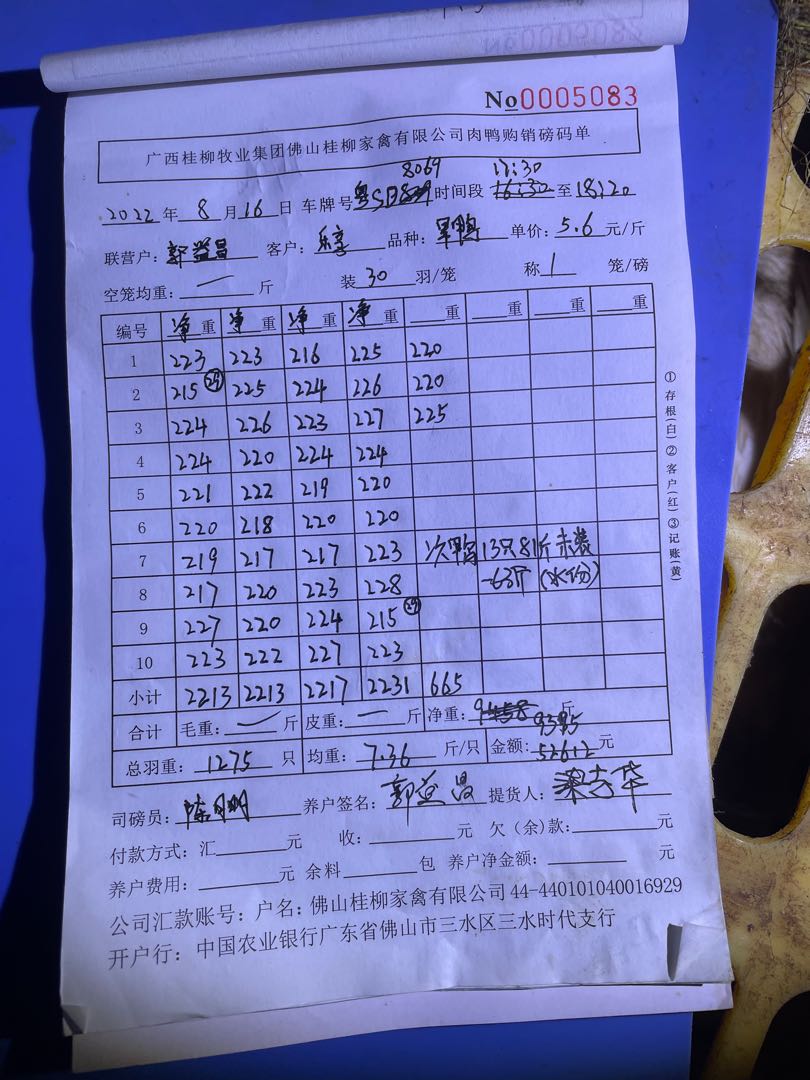 No0005083
广西桂柳牧业集团佛山桂柳家禽有限公司肉鸭购销磅码单
8069 17:30
2022年8月16日 车牌号 粤S 时间段 16:30 至 18:20
联营户: 郭益昌 客户: 乐享 品种: 鸭 单价: 5.6 元/斤
空笼均重: 一 斤 装 30 羽/笼 称 1 笼/磅
编号 净重 净重 净重 净重 重 重 重 重
1 223 223 216 225 220
2 215 29 225 224 226 220
3 224 226 223 227 225
4 224 220 224 224
5 221 222 219 220
6 220 218 220 220
7 219 217 217 223 次鸭 13只81斤 未装
8 217 220 223 228 -63斤 (水份)
9 227 220 224 215 29
10 223 222 227 223
小计 2213 2213 2217 2231 665
合计 毛重: 一 斤 皮重: 一 斤 净重: 9458 斤
9395
总羽重: 1275 只 均重: 7.36 斤/只 金额: 52612 元
司磅员: 养户签名: 郭益昌 提货人: 梁志华
付款方式: 汇 元 收: 元 欠(余)款: 元
养户费用: 元 余料 包 养户净金额: 元
公司汇款账号: 户名: 佛山桂柳家禽有限公司 44-440101040016929
开户行: 中国农业银行广东省佛山市三水区三水时代支行
①存根(白)②客户(红)③记账(黄)